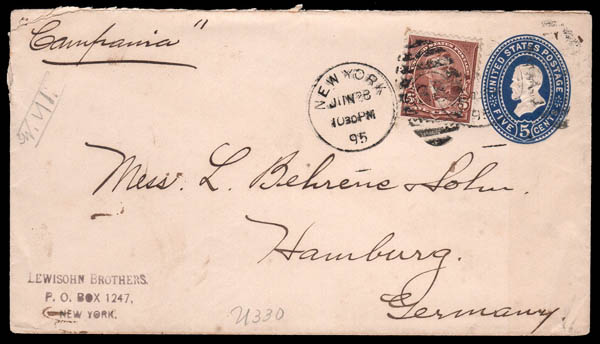 "Campania"
NEW YORK
JUN 28
1030PM
95
UNITED STATES POSTAGE
FIVE 5 CENTS
Mess. L. Behrens Söhn.
Hamburg.
Germany.
LEWISOHN BROTHERS.
P. O. BOX 1247,
NEW YORK.
U330